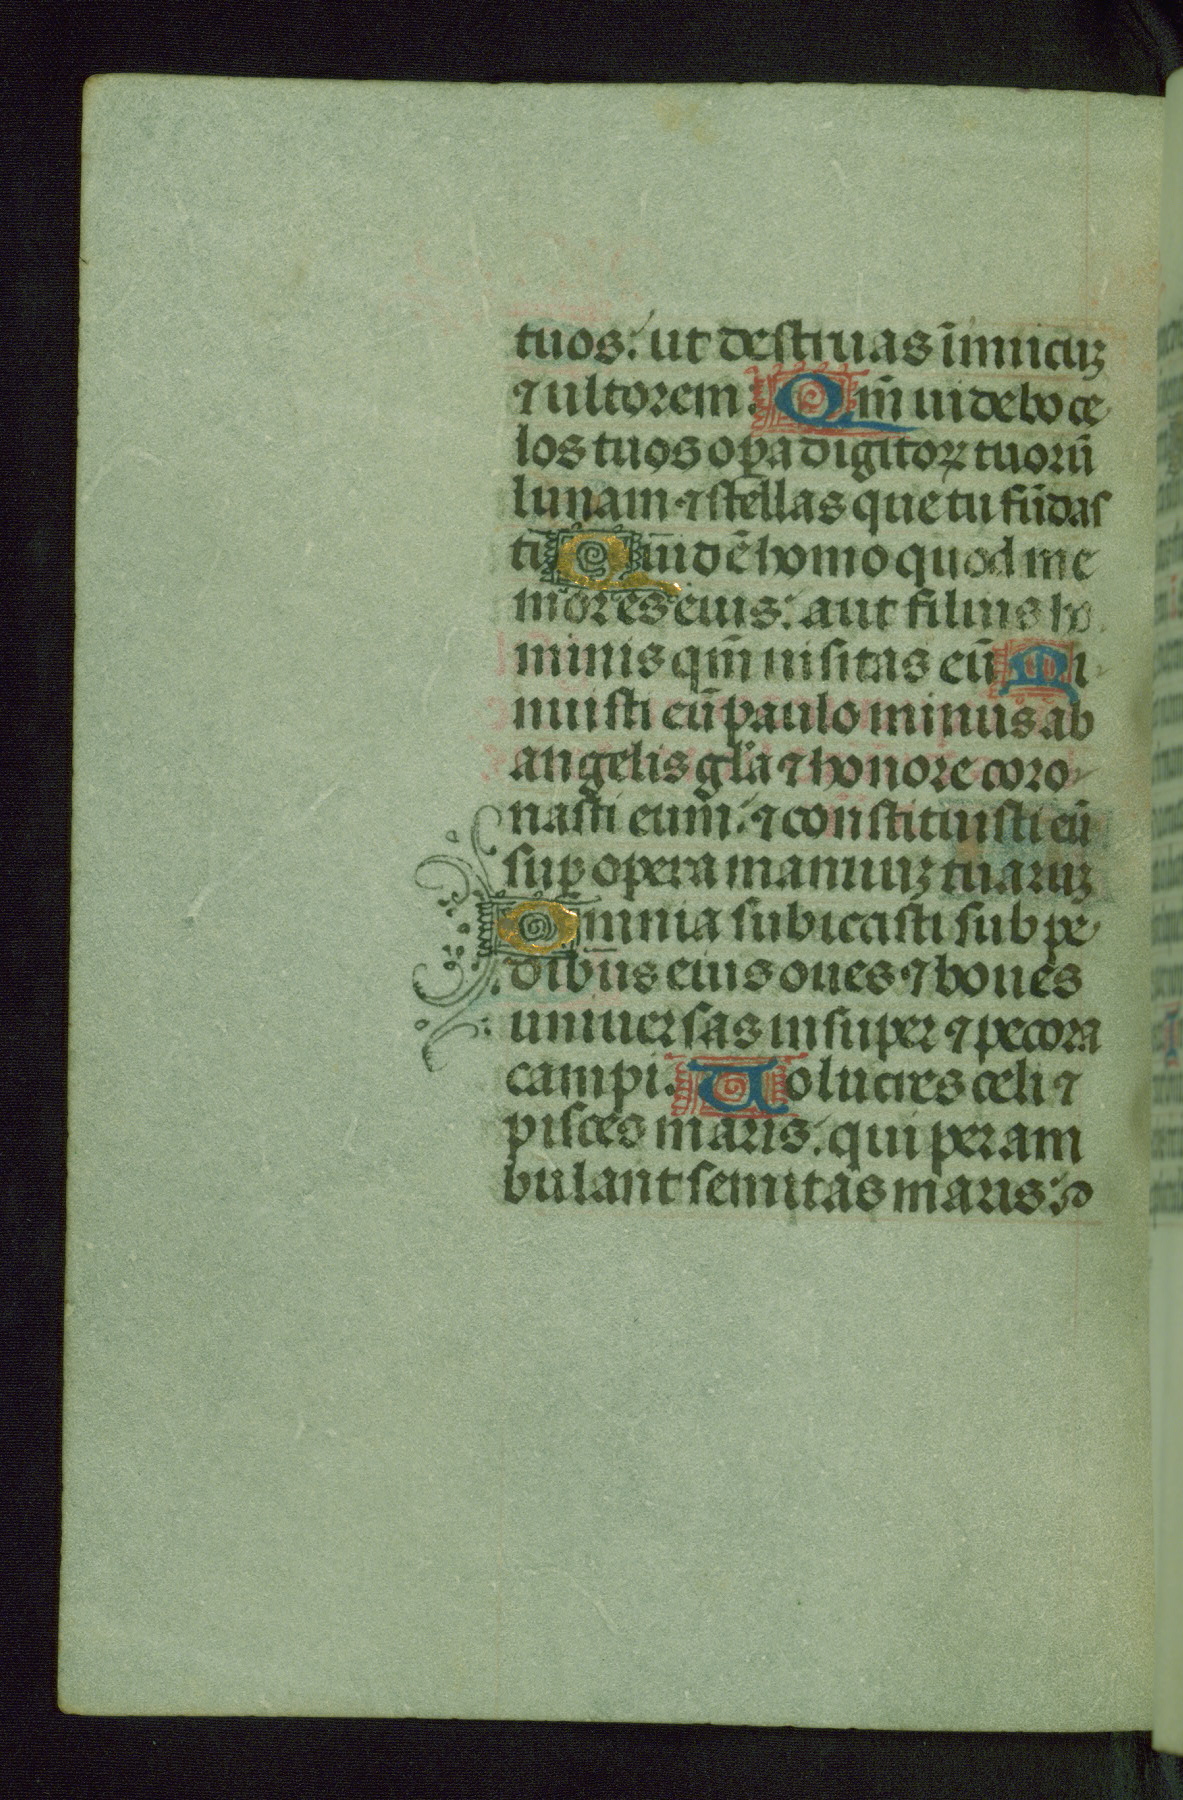 tuos: ut destruas īimicuꝫ
⁊ ultorem: Qm̄ uidebo ce
los tuos oꝑa digitoꝝ tuorū
lunam ⁊ stellas que tu fūdas
ti Quid ē homo quod me
mor es eius: aut filius ho
minis qm̄ uisitas eū Mi
nuisti eū paulo minus ab
angelis gl̄a ⁊ honore coro-
nasti eum̄: ⁊ constituisti eū
suꝑ opera manuuꝫ tuaruꝫ
Omnia subiecisti sub pe
dibus eius oues ⁊ boues
uniuersas insuper ⁊ pecora
campi. Uolucres celi ⁊
pisces maris: qui peram
bulant semitas maris: D